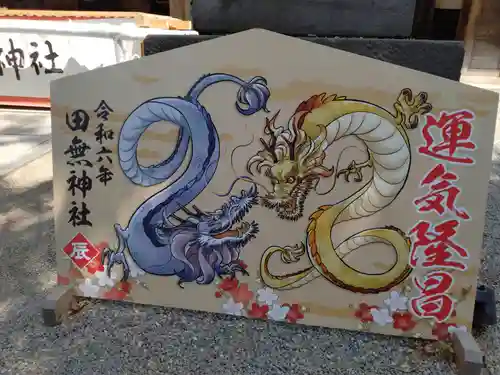 運気隆昌
令和六年
田無神社
辰
神社